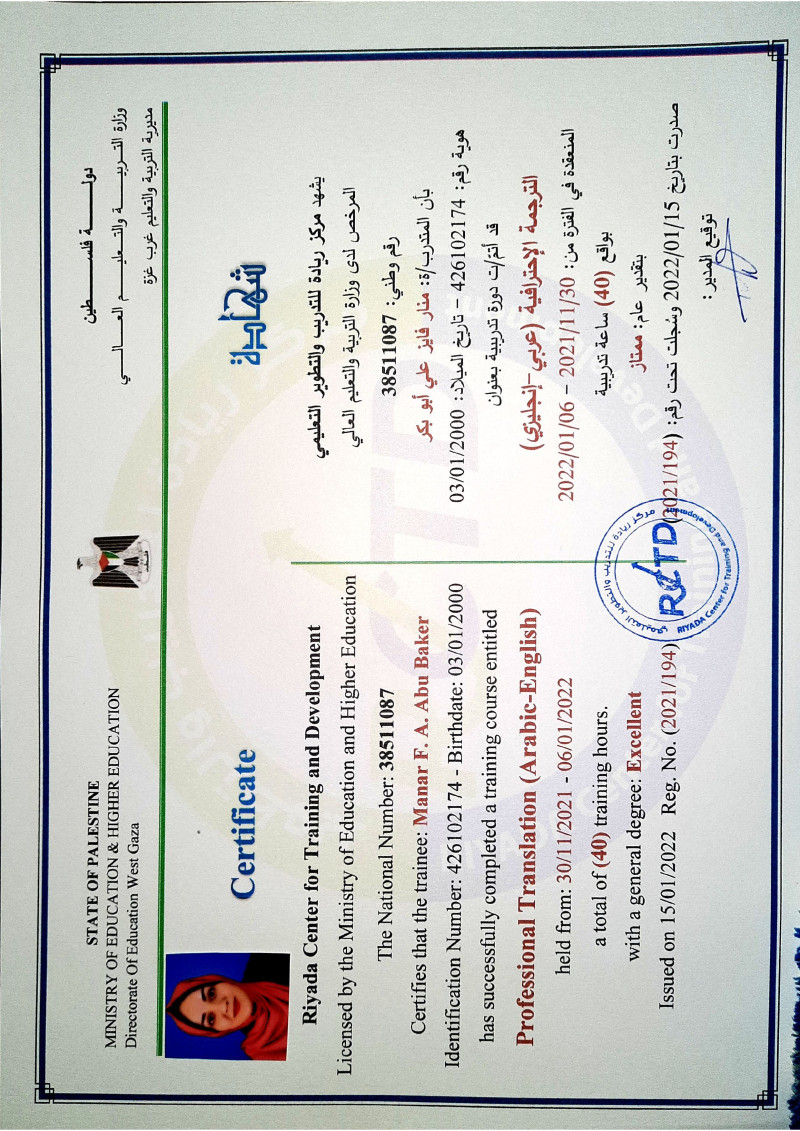 STATE OF PALESTINE
MINISTRY OF EDUCATION & HIGHER EDUCATION
Directorate Of Education West Gaza
دولــــــة فلســــطين
وزارة التربـــيـــــة والتـــعليــــم العـــــالـــــي
مديرية التربية والتعليم غرب غزة
Certificate
Riyada Center for Training and Development
Licensed by the Ministry of Education and Higher Education
The National Number: 38511087
Certifies that the trainee: Manar F. A. Abu Baker
Identification Number: 426102174 - Birthdate: 03/01/2000
has successfully completed a training course entitled
Professional Translation (Arabic-English)
held from: 30/11/2021 - 06/01/2022
a total of (40) training hours.
with a general degree: Excellent
Issued on 15/01/2022 Reg. No. (2021/194)
شهادة
يشهد مركز ريادة للتدريب والتطوير التعليمي
المرخص لدى وزارة التربية والتعليم العالي
رقم وطني: 38511087
بأن المتدرب/ة: منار فايز علي أبو بكر
هوية رقم: 426102174 – تاريخ الميلاد: 03/01/2000
قد أتم/ت دورة تدريبية بعنوان
الترجمة الإحترافية (عربي -إنجليزي)
المنعقدة في الفترة من: 2021/11/30 – 2022/01/06
بواقع (40) ساعة تدريبية
بتقدير عام: ممتاز
صدرت بتاريخ 2022/01/15 وسُجلت تحت رقم: (2021/194)
توقيع المدير :
مركز ريادة للتدريب والتطوير
RCTD
RIYADA Center for Training and Development